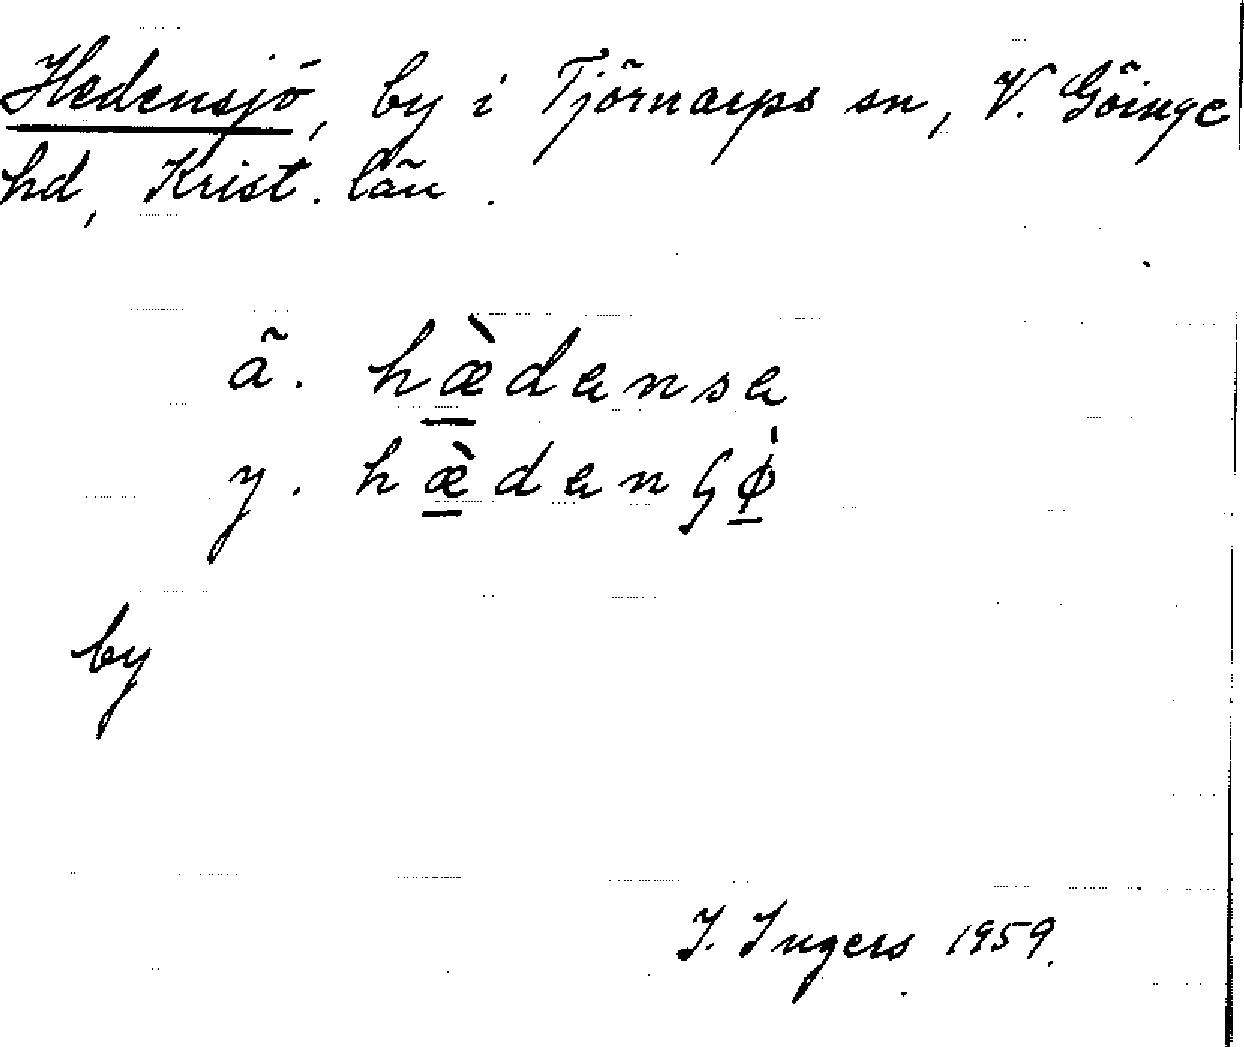 Hedensjö, by i Tjörnarps sn, V. Göinge
hd, Krist. län.
ä. hæ̀dense
y. hæ̀denʕø̀
by
I. Ingers 1959.